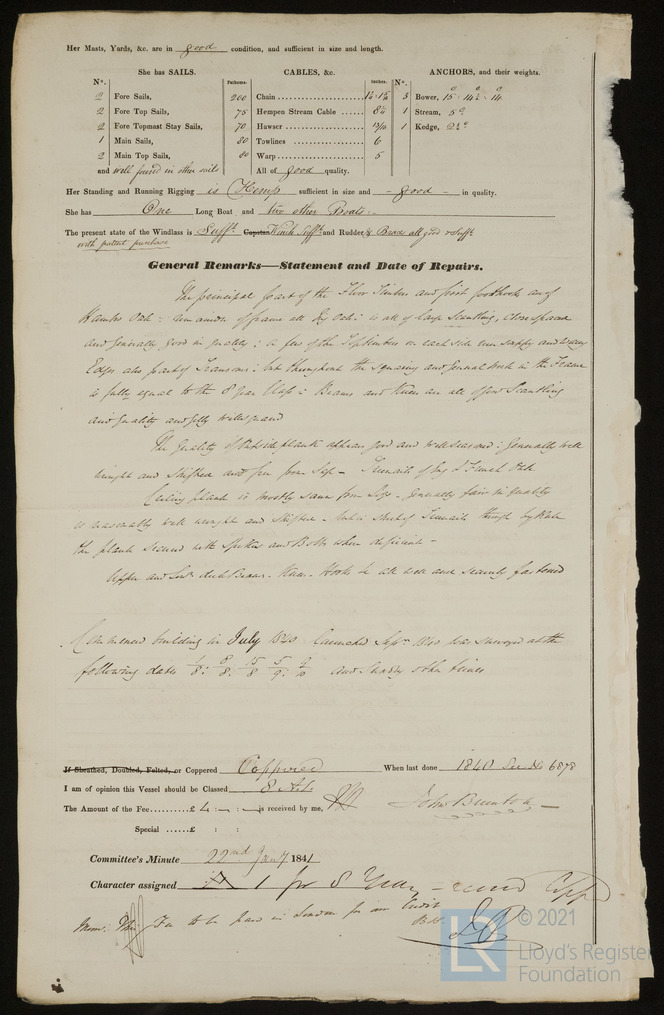 Her Masts, Yards, &c. are in good condition, and sufficient in size and length.
She has SAILS. CABLES, &c. ANCHORS, and their weights.
N°. Fathoms. Inches. N°.
2 Fore Sails, 200 Chain 3 Bower, 15
2 Fore Top Sails, 75 Hempen Stream Cable 8½ 1 Stream, 5
2 Fore Topmast Stay Sails, 70 Hawser 1 Kedge, 2½
1 Main Sails, 80 Towlines 6
2 Main Top Sails, 80 Warp 5
and well found in other sails All of good quality.
Her Standing and Running Rigging is Hemp sufficient in size and good in quality.
She has One Long Boat and two other Boats
The present state of the Windlass is Sufft. Capstan Winch Sufft. and Rudder & Brace all good & Sufft.
with patent purchase
General Remarks—Statement and Date of Repairs.
The principal part of the Floor Timbers and first foothooks are of
Hambro Oak frame all Oak: is all of large Scantling, close spaced
and generally good in quality: a few of the on each side
Edges also part of Transoms: but throughout the Squaring and general work in the Frame
is fully equal to the 8 year Class: Beams and Knees are all of good Scantling
and quality and
The quality of outside plank appears good and well seasoned: generally well
wrought and shifted and free from Saps - Treenails of Oak
Ceiling plank is mostly same from Saps - generally fair in quality
is reasonably well wrought and shifted - Treenails though
the plank secured with Spikes and Bolts when deficient -
Upper and Deck Beams. Knees. Hooks &c all well and securely fastened
Commenced building in July 1840 Launched Sepr. 1840 was surveyed at the
following dates 1/8: 8/8: 15/8 5/9: 9/10 and sundry other times
If Sheathed, Doubled, Felted, or Coppered Coppered When last done 1840 See No 6878
I am of opinion this Vessel should be Classed 8 A1
The Amount of the Fee..........£ 4 : - : - is received by me,
John Brunton
Special ......£ : :
Committee's Minute 22nd Jany 1841
Character assigned A 1 for 8 Years
Mem: Fee to be paid in London for our Credit
© 2021
LR
Lloyd's Register
Foundation